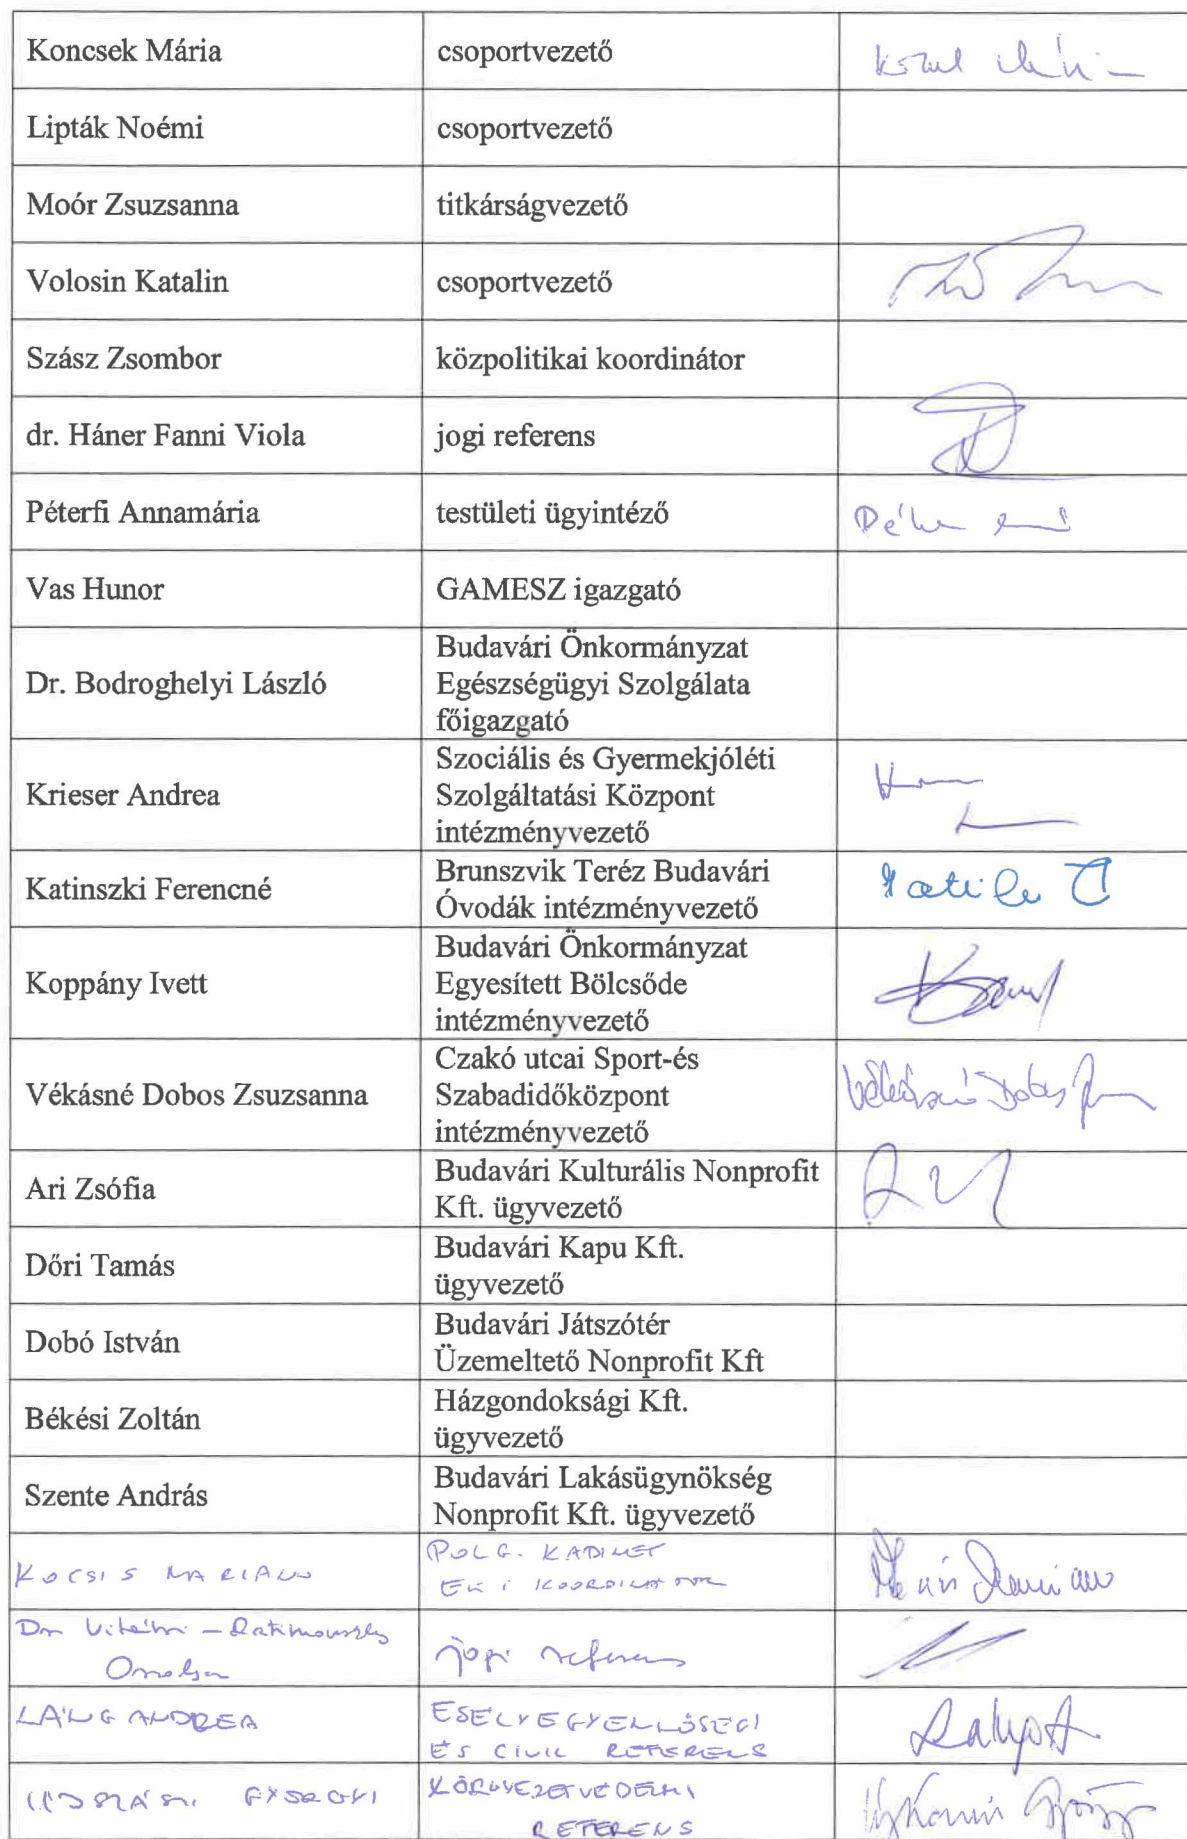 Koncsek Mária
csoportvezető
Lipták Noémi
csoportvezető
Moór Zsuzsanna
titkárságvezető
Volosin Katalin
csoportvezető
Szász Zsombor
közpolitikai koordinátor
dr. Háner Fanni Viola
jogi referens
Péterfi Annamária
testületi ügyintéző
Vas Hunor
GAMESZ igazgató
Dr. Bodroghelyi László
Budavári Önkormányzat
Egészségügyi Szolgálata
főigazgató
Krieser Andrea
Szociális és Gyermekjóléti
Szolgáltatási Központ
intézményvezető
Katinszki Ferencné
Brunszvik Teréz Budavári
Óvodák intézményvezető
Koppány Ivett
Budavári Önkormányzat
Egyesített Bölcsőde
intézményvezető
Vékásné Dobos Zsuzsanna
Czakó utcai Sport-és
Szabadidőközpont
intézményvezető
Vékásné Dobos
Ari Zsófia
Budavári Kulturális Nonprofit
Kft. ügyvezető
Dőri Tamás
Budavári Kapu Kft.
ügyvezető
Dobó István
Budavári Játszótér
Üzemeltető Nonprofit Kft
Békési Zoltán
Házgondoksági Kft.
ügyvezető
Szente András
Budavári Lakásügynökség
Nonprofit Kft. ügyvezető
KOCSIS
POLG. KABINET
KOORDINÁTOR
Dr
Orsolya
jogi referens
LÁNG ANDREA
ESÉLYEGYENLŐSÉGI
ÉS CIVIL REFERENS
KÖRNYEZETVÉDELMI
REFERENS